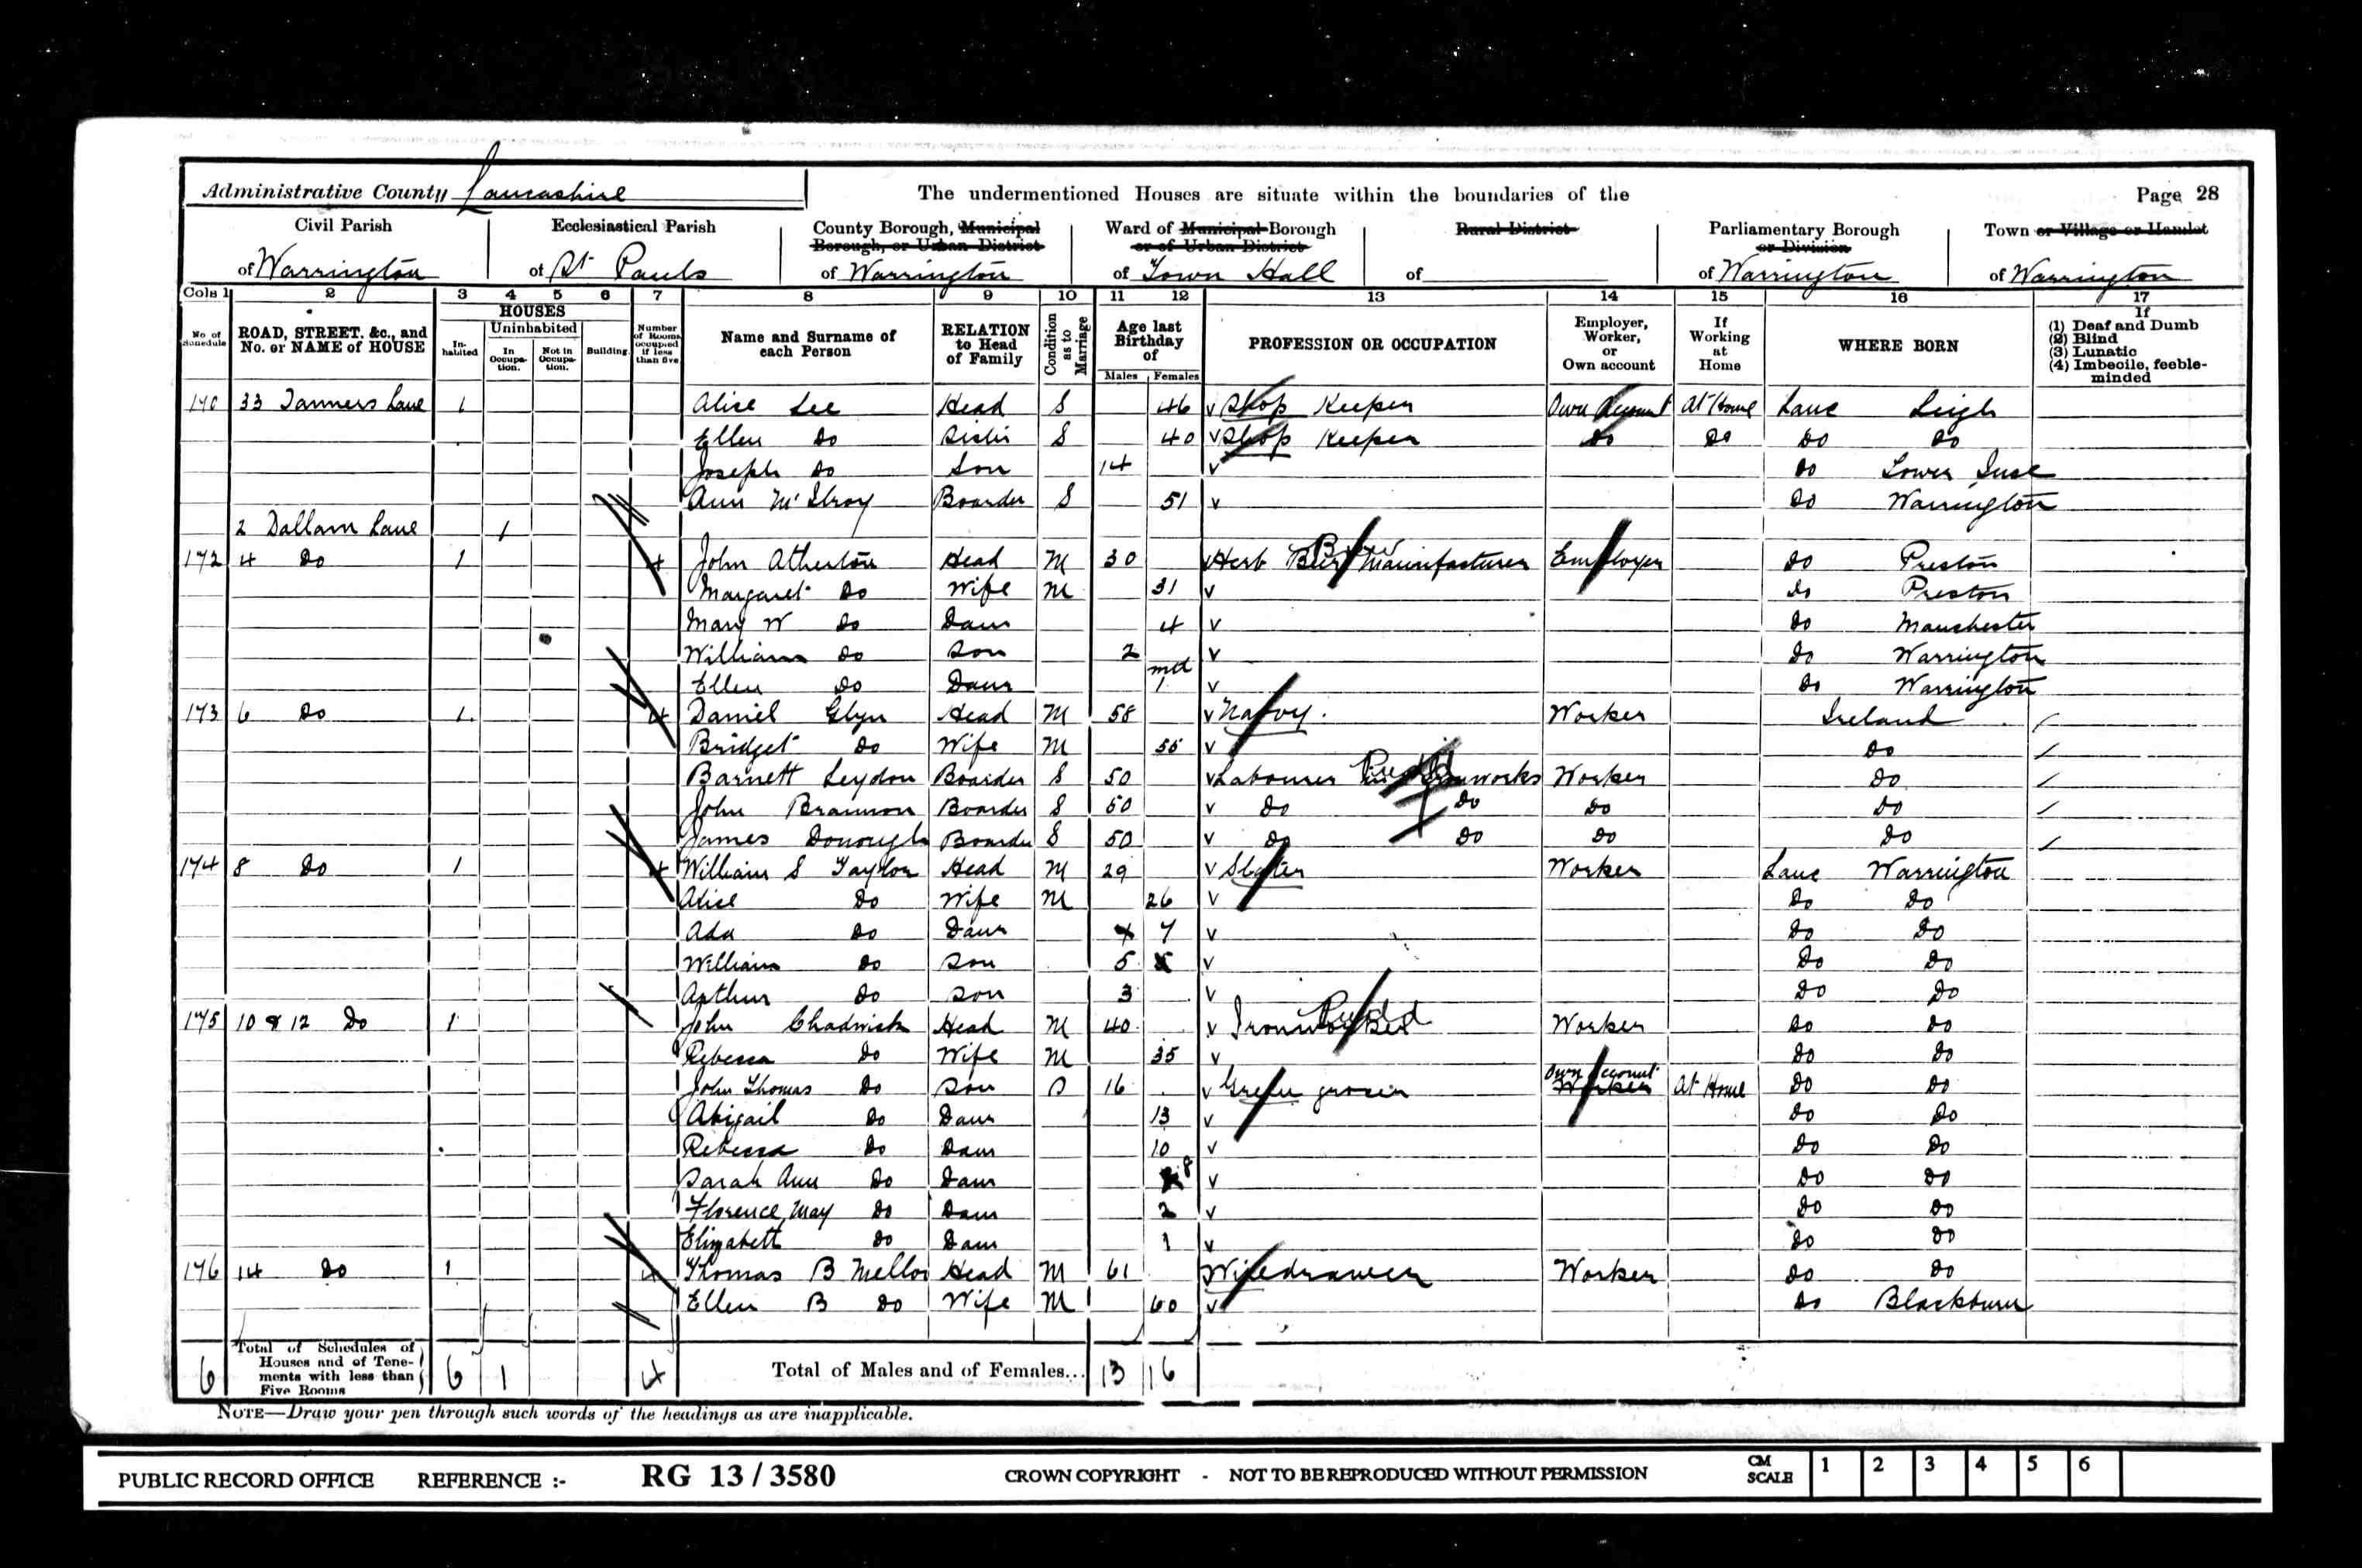 Administrative County Lancashire The undermentioned Houses are situate within the boundaries of the Page 28
Civil Parish Ecclesiastical Parish County Borough, Municipal Borough, or Urban District Ward of Municipal Borough or of Urban District Rural District Parliamentary Borough or Division Town or Village or Hamlet
of Warrington of St Pauls of Warrington of Town Hall of of Warrington of Warrington
Cols 1 2 3 4 5 6 7 8 9 10 11 12 13 14 15 16 17
No. of Schedule ROAD, STREET, &c., and No. or NAME of HOUSE HOUSES Inhabited Uninhabited In Occupation. Not in Occupation. Building. Number of Rooms occupied if less than five Name and Surname of each Person RELATION to Head of Family Condition as to Marriage Age last Birthday of Males Females PROFESSION OR OCCUPATION Employer, Worker, or Own account If Working at Home WHERE BORN If (1) Deaf and Dumb (2) Blind (3) Lunatic (4) Imbecile, feeble-minded
170 33 Tanners Lane 1 Alice Lee Head S 46 Shop Keeper Own Account At Home Lanc Leigh
Ellen Do Sister S 40 Shop Keeper Do Do Do Do
Joseph Do Son 14 Do Lower
Ann McIlroy Boarder S 51 Do Warrington
2 Dallam Lane 1
172 4 Do 1 4 John Atherton Head M 30 Herb Beer Manufacturer Employer Do Preston
Margaret Do Wife M 31 Do Preston
Mary W Do Daur 4 Do Manchester
William Do Son 2 Do Warrington
Ellen Do Daur 1 Do Warrington
173 6 Do 1 4 Daniel Glyn Head M 58 Navvy Worker Ireland
Bridget Do Wife M 55 Do
Barnett Leydon Boarder S 50 Labourer Ironworks Worker Do
John Brannon Boarder S 50 Do Do Do Do
James Donough Boarder S 50 Do Do Do Do
174 8 Do 1 4 William S Taylor Head M 29 Slater Worker Lanc Warrington
Alice Do Wife M 26 Do Do
Ada Do Daur 7 Do Do
William Do Son 5 Do Do
Arthur Do Son 3 Do Do
175 10 & 12 Do 1 John Chadwick Head M 40 Ironworker Puddl Worker Do Do
Rebecca Do Wife M 35 Do Do
John Thomas Do Son S 16 Green grocer Own account Worker At Home Do Do
Abigail Do Daur 13 Do Do
Rebecca Do Daur 10 Do Do
Sarah Ann Do Daur 8 Do Do
Florence May Do Daur 2 Do Do
Elizabeth Do Daur 1 Do Do
176 14 Do 1 4 Thomas B Mellor Head M 61 Wiredrawer Worker Do Do
Ellen B Do Wife M 60 Do Blackburn
6 Total of Schedules of Houses and of Tenements with less than Five Rooms 6 1 4 Total of Males and of Females... 13 16
NOTE—Draw your pen through such words of the headings as are inapplicable.
PUBLIC RECORD OFFICE REFERENCE :- RG 13 / 3580 CROWN COPYRIGHT - NOT TO BE REPRODUCED WITHOUT PERMISSION CM SCALE 1 2 3 4 5 6